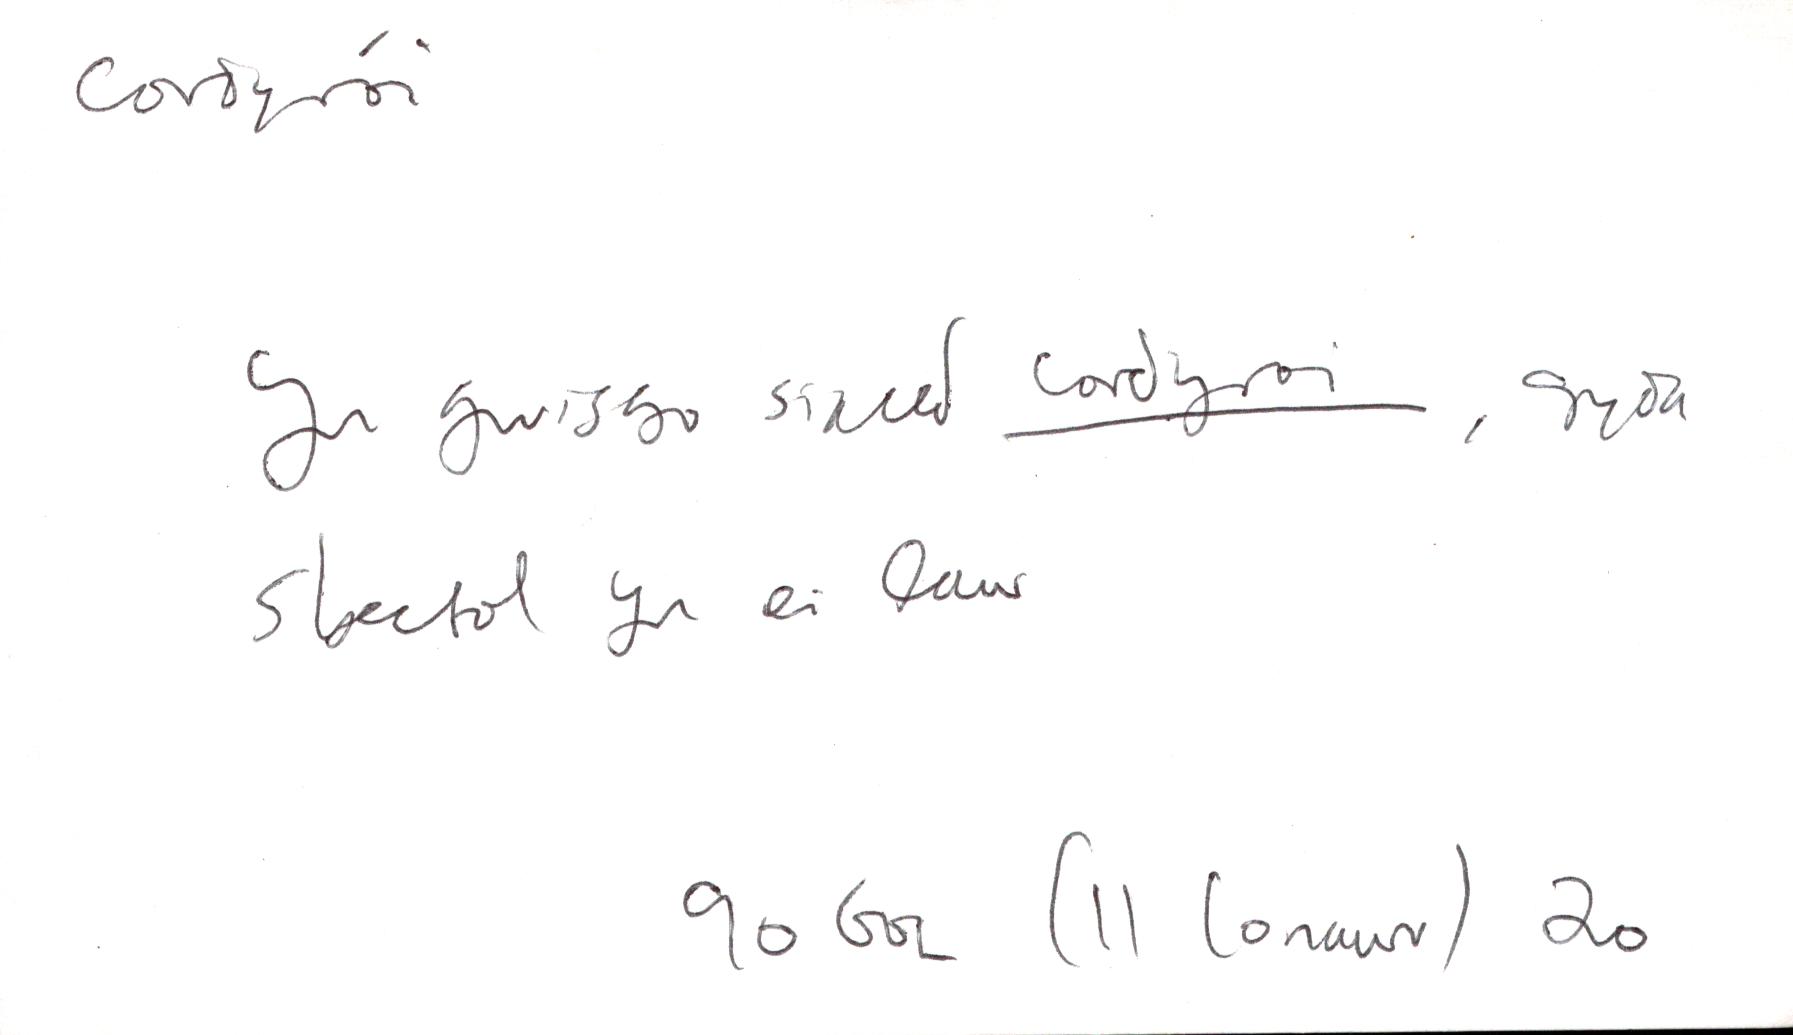 cordyrói
Yn gwisgo siaced cordyroi, gyda
sbectol yn ei law
90 GOL (11 Ionawr) 20